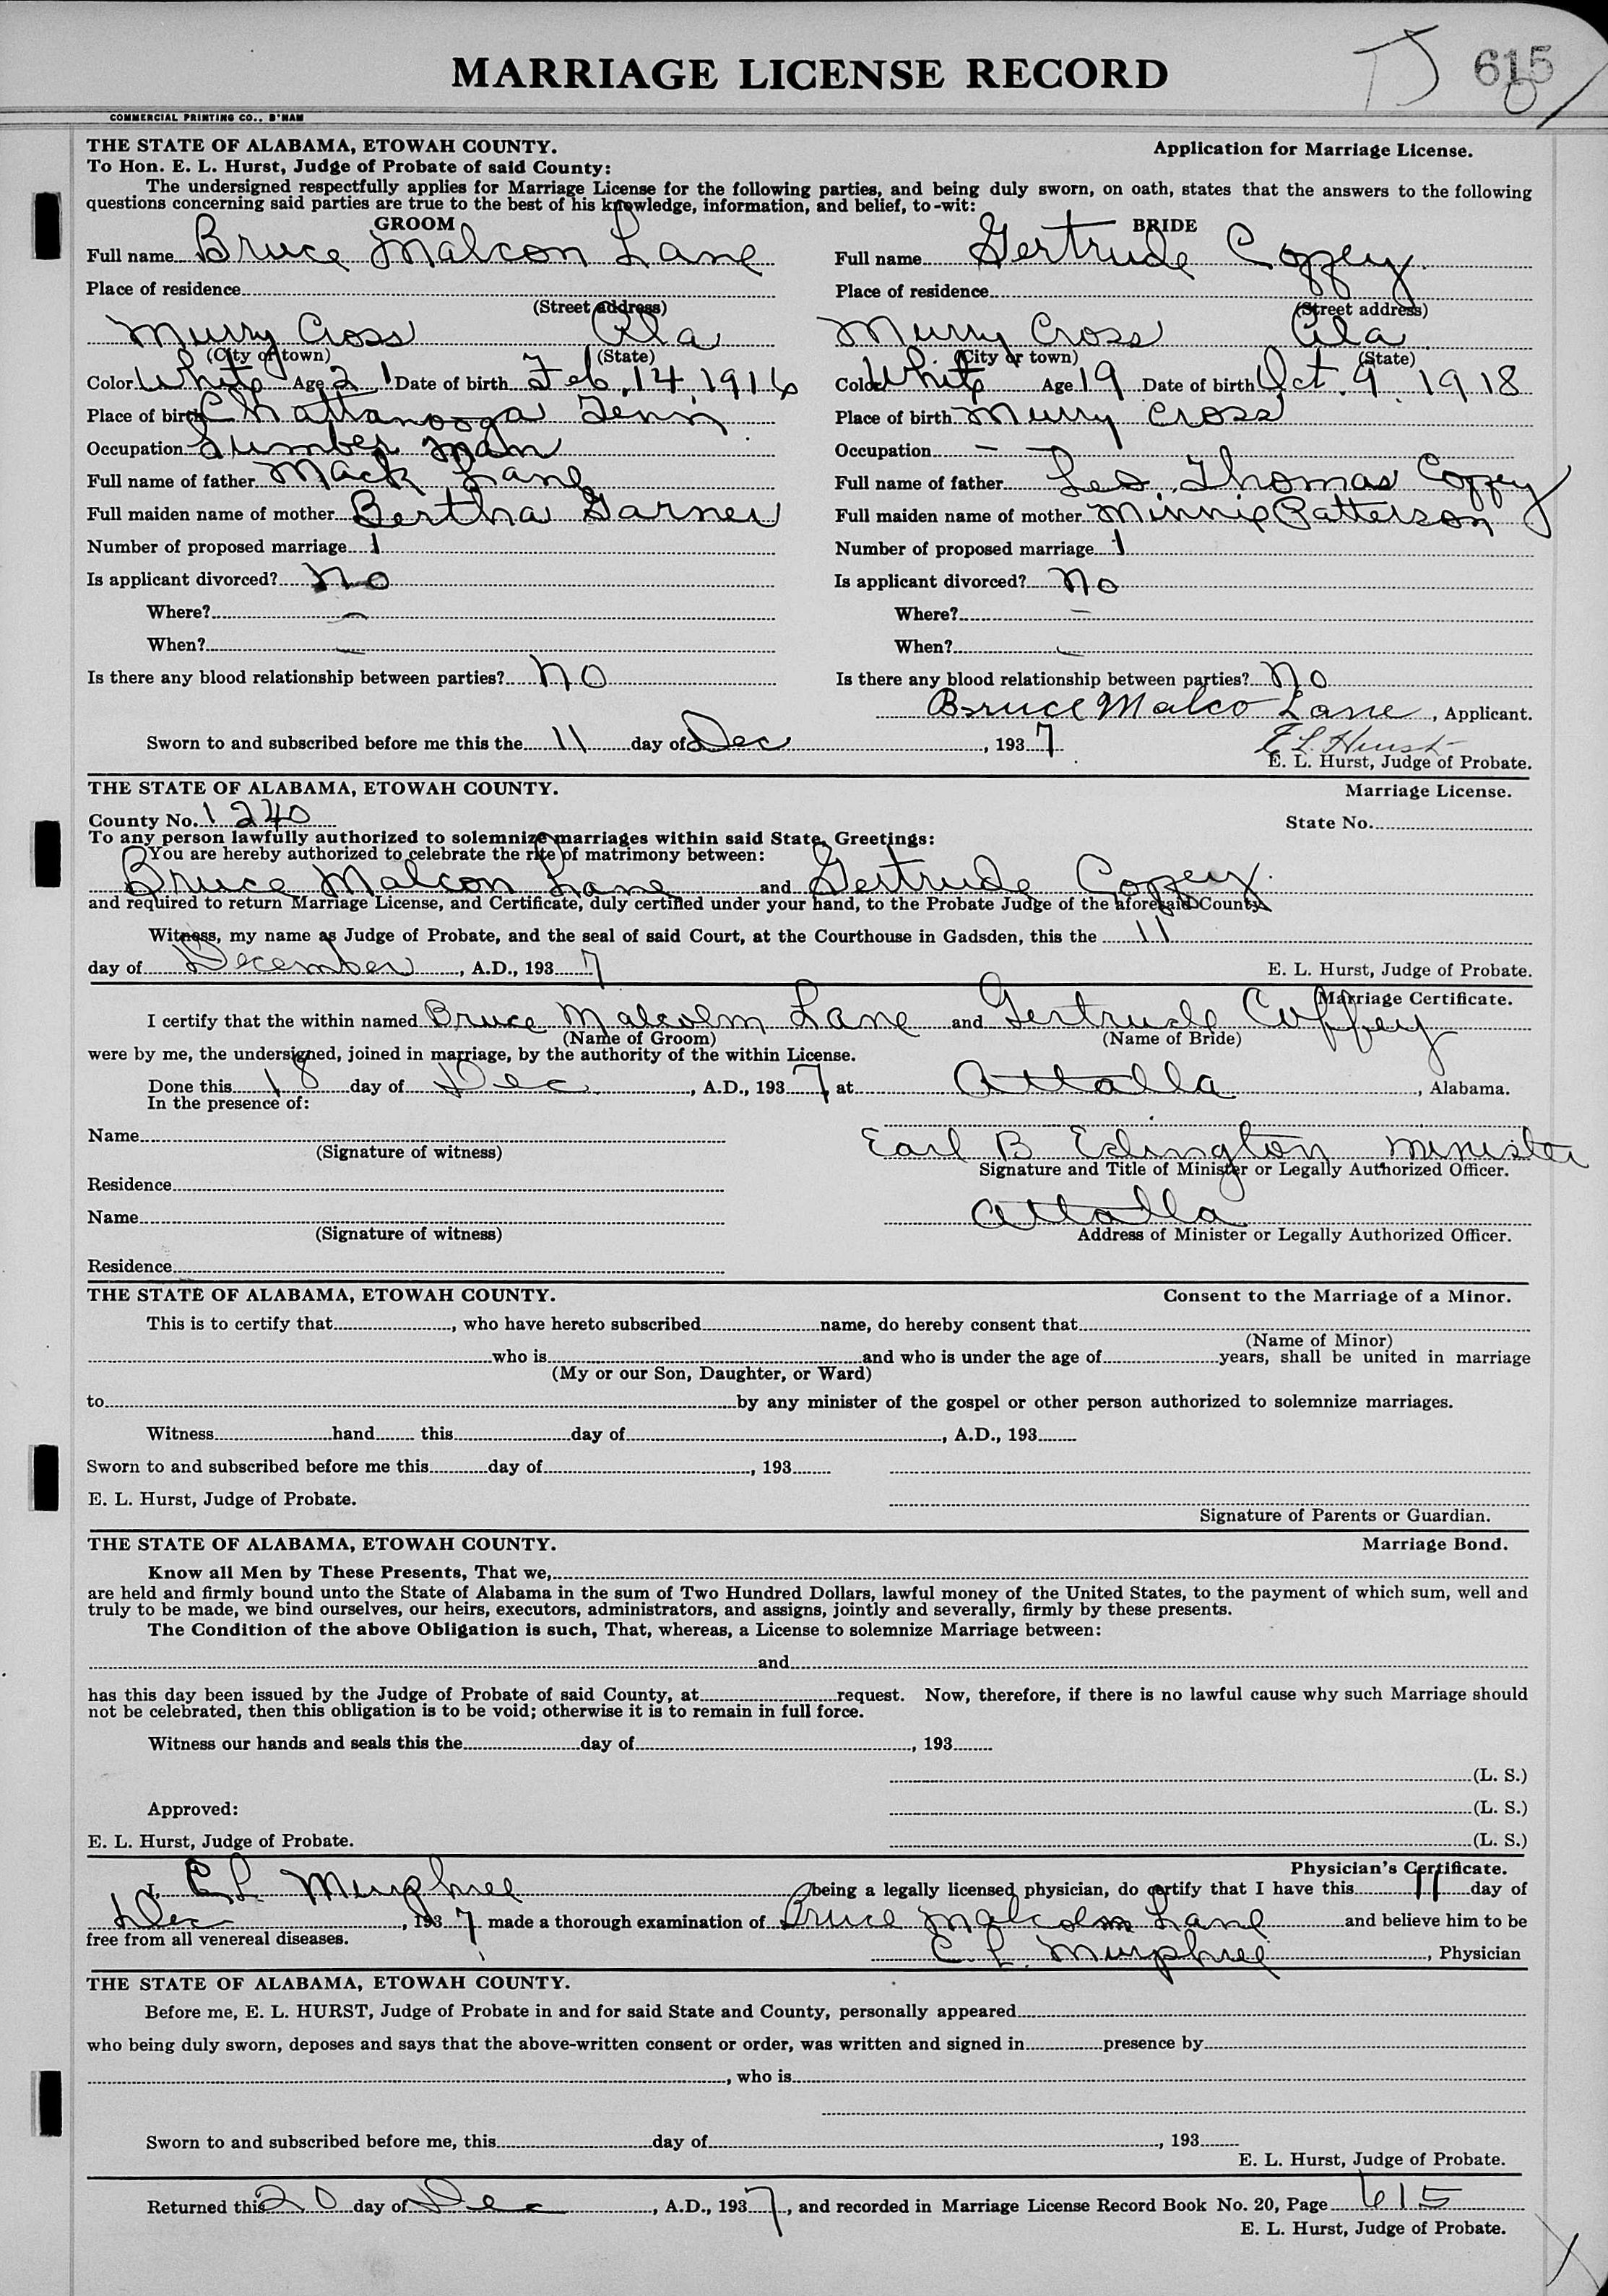 MARRIAGE LICENSE RECORD
TJ 615
COMMERCIAL PRINTING CO., B'HAM
THE STATE OF ALABAMA, ETOWAH COUNTY. Application for Marriage License.
To Hon. E. L. Hurst, Judge of Probate of said County:
The undersigned respectfully applies for Marriage License for the following parties, and being duly sworn, on oath, states that the answers to the following
questions concerning said parties are true to the best of his knowledge, information, and belief, to-wit:
GROOM BRIDE
Full name Bruce Malcon Lane Full name Gertrude Coffey
Place of residence Place of residence
(Street address) (Street address)
Murry Cross Ala Murry Cross Ala
(City or town) (State) (City or town) (State)
Color White Age 21 Date of birth Feb. 14 1916 Color White Age 19 Date of birth Oct. 9 1918
Place of birth Chattanooga Tenn Place of birth Murry Cross
Occupation Lumber man Occupation —
Full name of father Mack Lane Full name of father Leo. Thomas Coffey
Full maiden name of mother Bertha Garner Full maiden name of mother Minnie Patterson
Number of proposed marriage 1 Number of proposed marriage 1
Is applicant divorced? No Is applicant divorced? No
Where? — Where? —
When? — When? —
Is there any blood relationship between parties? No Is there any blood relationship between parties? No
Bruce Malco Lane, Applicant.
Sworn to and subscribed before me this the 11 day of Dec, 1937 E L Hurst
E. L. Hurst, Judge of Probate.
THE STATE OF ALABAMA, ETOWAH COUNTY. Marriage License.
County No. 1240 State No.
To any person lawfully authorized to solemnize marriages within said State, Greetings:
You are hereby authorized to celebrate the rite of matrimony between:
Bruce Malcon Lane and Gertrude Coffey
and required to return Marriage License, and Certificate, duly certified under your hand, to the Probate Judge of the aforesaid County.
Witness, my name as Judge of Probate, and the seal of said Court, at the Courthouse in Gadsden, this the 11
day of December, A.D., 1937 E. L. Hurst, Judge of Probate.
Marriage Certificate.
I certify that the within named Bruce Malcolm Lane and Gertrude Coffey
(Name of Groom) (Name of Bride)
were by me, the undersigned, joined in marriage, by the authority of the within License.
Done this 18 day of Dec, A.D., 1937 at Attalla, Alabama.
In the presence of:
Name Earl B Edington minister
(Signature of witness) Signature and Title of Minister or Legally Authorized Officer.
Residence
Name Attalla
(Signature of witness) Address of Minister or Legally Authorized Officer.
Residence
THE STATE OF ALABAMA, ETOWAH COUNTY. Consent to the Marriage of a Minor.
This is to certify that, who have hereto subscribed name, do hereby consent that
(Name of Minor)
who is and who is under the age of years, shall be united in marriage
(My or our Son, Daughter, or Ward)
to by any minister of the gospel or other person authorized to solemnize marriages.
Witness hand this day of, A.D., 193
Sworn to and subscribed before me this day of, 193
E. L. Hurst, Judge of Probate.
Signature of Parents or Guardian.
THE STATE OF ALABAMA, ETOWAH COUNTY. Marriage Bond.
Know all Men by These Presents, That we,
are held and firmly bound unto the State of Alabama in the sum of Two Hundred Dollars, lawful money of the United States, to the payment of which sum, well and
truly to be made, we bind ourselves, our heirs, executors, administrators, and assigns, jointly and severally, firmly by these presents.
The Condition of the above Obligation is such, That, whereas, a License to solemnize Marriage between:
and
has this day been issued by the Judge of Probate of said County, at request. Now, therefore, if there is no lawful cause why such Marriage should
not be celebrated, then this obligation is to be void; otherwise it is to remain in full force.
Witness our hands and seals this the day of, 193
(L. S.)
Approved: (L. S.)
E. L. Hurst, Judge of Probate. (L. S.)
Physician's Certificate.
I, C L Murphree being a legally licensed physician, do certify that I have this 11 day of
Dec, 1937 made a thorough examination of Bruce Malcolm Lane and believe him to be
free from all venereal diseases.
C. L. Murphree, Physician
THE STATE OF ALABAMA, ETOWAH COUNTY.
Before me, E. L. HURST, Judge of Probate in and for said State and County, personally appeared
who being duly sworn, deposes and says that the above-written consent or order, was written and signed in presence by
, who is
Sworn to and subscribed before me, this day of, 193
E. L. Hurst, Judge of Probate.
Returned this 20 day of Dec, A.D., 1937, and recorded in Marriage License Record Book No. 20, Page 615
E. L. Hurst, Judge of Probate.